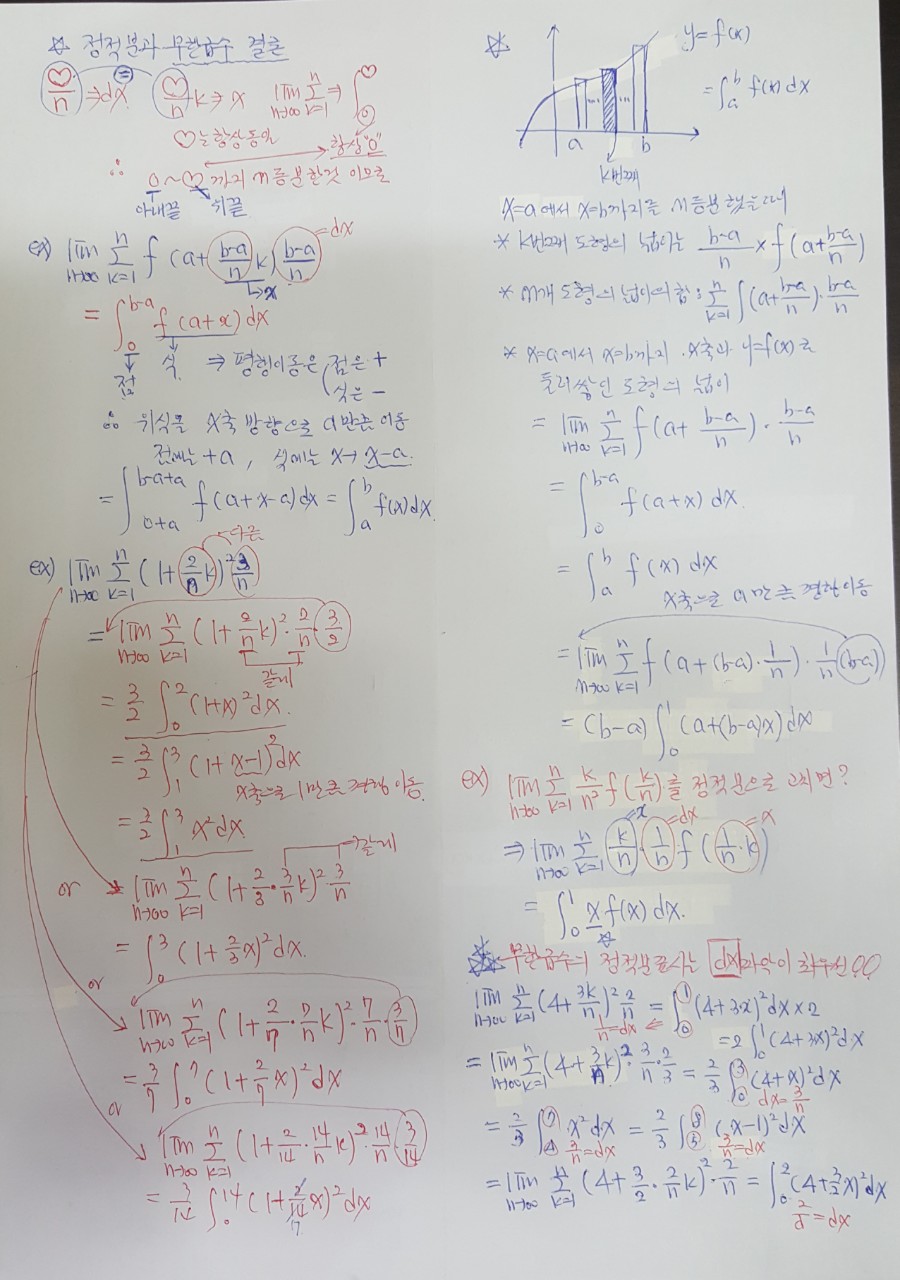 ☆ 정적분과 무한급수 결론
♡/n ⇒ dx  ♡/n k ⇒ x  lim n→∞ Σ k=1 n ⇒ ∫ 0 ♡
♡는 항상 동일  항상 "0"
∴ 0 ~ ♡ 까지 n등분한것 이므로
아래끝  위끝
ex) lim n→∞ Σ k=1 n f (a+ (b-a)/n k) (b-a)/n = dx
↳ x
= ∫ 0 b-a f (a+x) dx
점  식 ⇒ 평행이동은 ( 점은 +
식은 -
∴ 위식을 x축 방향으로 a만큼 이동
점에는 +a , 식에는 x → x-a.
= ∫ 0+a b-a+a f(a+x-a)dx = ∫ a b f(x)dx.
ex) lim n→∞ Σ k=1 n (1+ 2/n k)² 3/n → 다름
= lim n→∞ Σ k=1 n (1+ 2/n k)² · 2/n · 3/2
같게
= 3/2 ∫ 0 2 (1+x)² dx.
= 3/2 ∫ 1 3 (1+x-1)² dx
x축으로 1만큼 평행이동.
= 3/2 ∫ 1 3 x² dx
→ 같게
or lim n→∞ Σ k=1 n (1+ 2/3 · 3/n k)² · 3/n
= ∫ 0 3 (1+ 2/3 x)² dx.
or lim n→∞ Σ k=1 n (1+ 2/7 · 7/n k)² · 7/n · 3/7
= 3/7 ∫ 0 7 (1+ 2/7 x)² dx
or lim n→∞ Σ k=1 n (1+ 2/14 · 14/n k)² · 14/n · 3/14
= 3/14 ∫ 0 14 (1+ 2/14 x)² dx
7
☆ y=f(x)
= ∫ a b f(x) dx
a  b
k번째
x=a에서 x=b까지를 n등분 했을때
* k번째 도형의 넓이는 (b-a)/n × f(a+ (b-a)/n)
* n개 도형의 넓이의 합 : Σ k=1 n f(a+ (b-a)/n) · (b-a)/n
* x=a에서 x=b까지 x축과 y=f(x)로
둘러쌓인 도형의 넓이
= lim n→∞ Σ k=1 n f(a+ (b-a)/n) · (b-a)/n
= ∫ 0 b-a f(a+x) dx.
= ∫ a b f(x) dx
x축으로 a만큼 평행이동
= lim n→∞ Σ k=1 n f(a+(b-a) · 1/n) · 1/n (b-a)
= (b-a) ∫ 0 1 (a+(b-a)x) dx
ex) lim n→∞ Σ k=1 n k/n² f(k/n)를 정적분으로 고치면?
⇒ lim n→∞ Σ k=1 n (k/n) =x · (1/n) =dx f(1/n · k) =x
= ∫ 0 1 x f(x) dx.
☆ 무한급수의 정적분표시는 dx파악이 최우선!!
lim n→∞ Σ k=1 n (4+ 3k/n)² 2/n = ∫ 0 1 (4+3x)² dx × 2
1/n = dx ⇐ = 2 ∫ 0 1 (4+3x)² dx
= lim n→∞ Σ k=1 n (4+ 3/n k)² · 3/n · 2/3 = 2/3 ∫ 0 3 (4+x)² dx
dx = 3/n
= 2/3 ∫ 4 7 x² dx = 2/3 ∫ 5 8 (x-1)² dx
3/n = dx  3/n = dx
= lim n→∞ Σ k=1 n (4+ 3/2 · 2/n k)² · 2/n = ∫ 0 2 (4+ 3/2 x)² dx
= dx